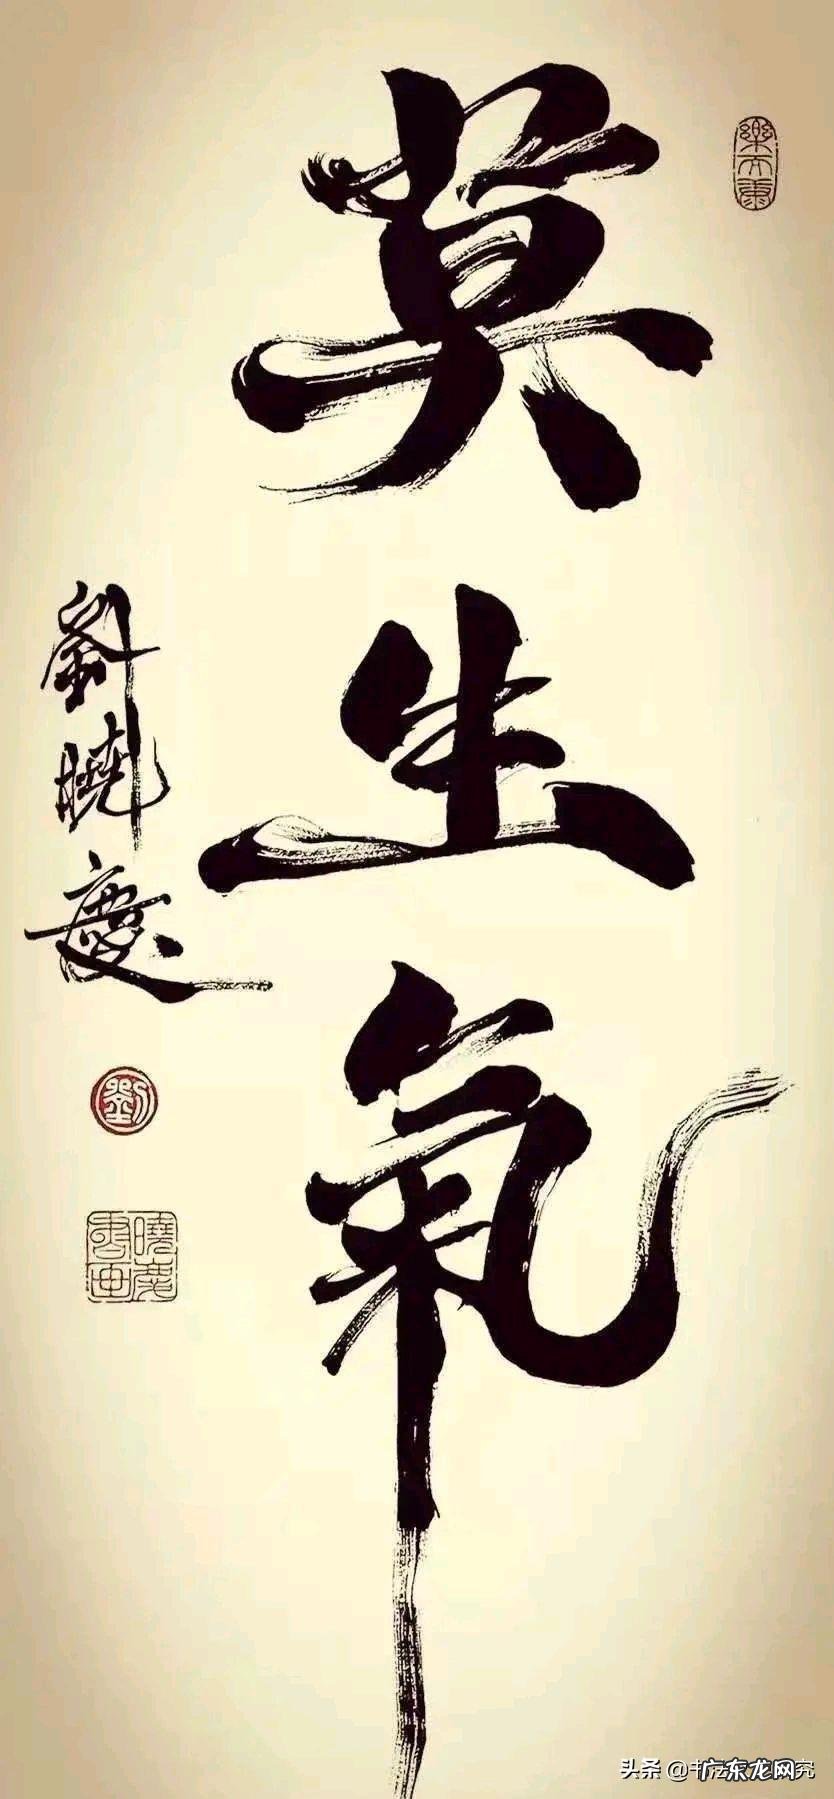 莫生氣
劉曉慶
劉
曉慶
書画
头条 @广东龙网